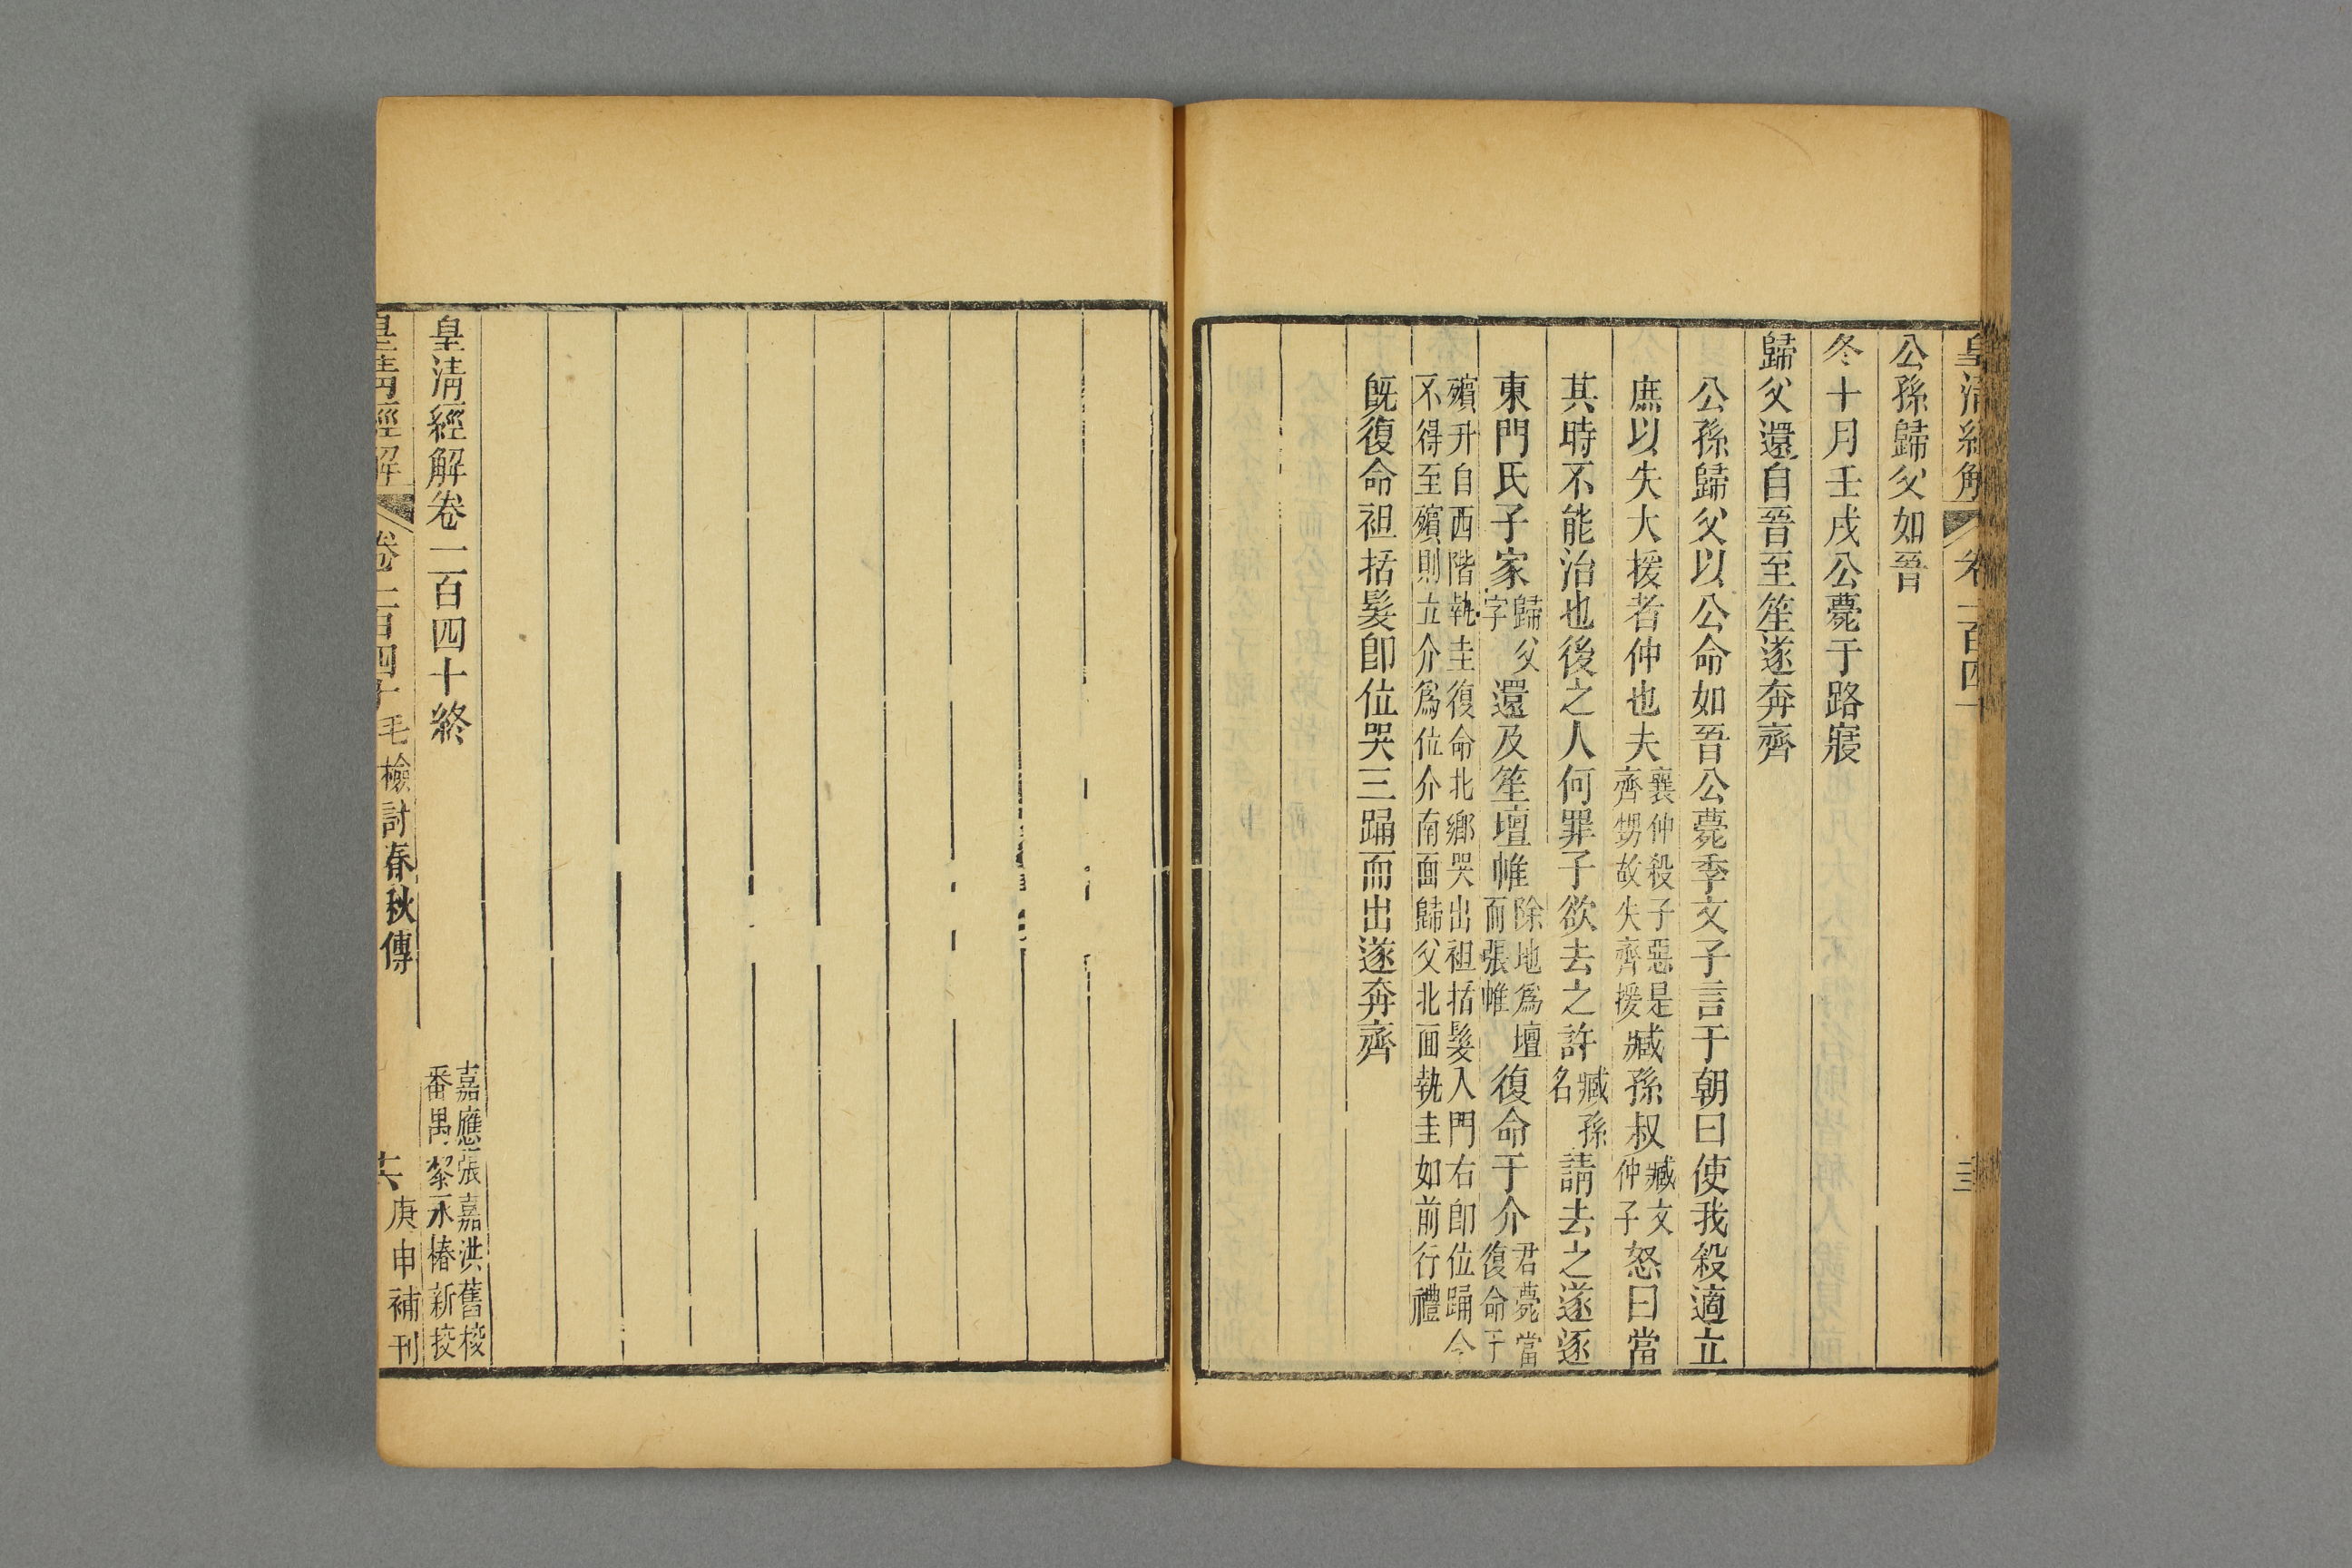 皇清經解 卷一百四十
公孫歸父如晉
冬十月壬戌公薨于路寢
歸父還自晉至笙遂奔齊
公孫歸父以公命如晉公薨季文子言于朝曰使我殺適立
庶以失大援者仲也夫襄仲殺子惡是齊甥故失齊援臧孫叔臧文仲子怒曰當
其時不能治也後之人何罪子欲去之許臧孫名請去之遂逐
東門氏子家歸父字還及笙壇帷除地爲壇而張帷復命于介君薨當復命于
殯升自西階執圭復命北鄉哭出袒括髮入門右卽位踊今
不得至殯則立介爲位介南面歸父北面執圭如前行禮
旣復命袒括髮卽位哭三踊而出遂奔齊
皇清經解卷一百四十終
嘉應張嘉洪舊校
番禺黎永椿新校
皇清經解 卷一百四十 毛檢討春秋傳 庚申補刊